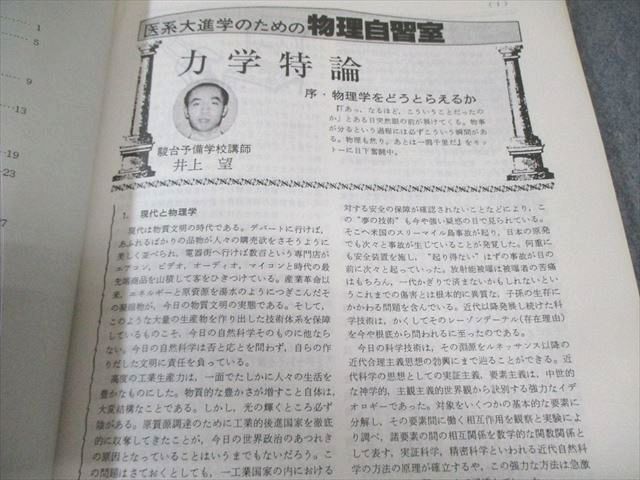 (1)
1
5
9
-13
-19
-21
7
医系大進学のための物理自習室
力学特論
序・物理学をどうとらえるか
『「あっ、なるほど、こういうことだったの
か」とある日突然眼の前が展けてくる。物事
が分るという過程には必ずこういう瞬間があ
る。物理も然り。あとは一潟千里だ』をモッ
トーに目下奮闘中。
駿台予備学校講師
井上 望
1. 現代と物理学
現代は物質文明の時代である。デパートに行けば、
あふれるばかりの品物が人々の購売欲をさそうように
美しく並べられ、電器街へ行けば数百という専門店が
エアコン、ビデオ、オーディオ、マイコンと時代の最
先端商品を山積して客をひきつけている。産業革命以
来、エネルギーと原資源を湯水のようにつぎこんだそ
の凝縮物が、今日の物質文明の実態である。そして、
このような大量の生産物を作り出した技術体系を保障
しているものこそ、今日の自然科学そのものに他なら
ない。今日の自然科学は否と応とを問わず、自らの作
りだした文明に責任を負っている。
高度の工業生産力は、一面でたしかに人々の生活を
豊かなものにした。物質的な豊かさが増すこと自体は、
大変結構なことである。しかし、光の輝くところ必ず
陰がある。原資源調達のために工業的後進国家を徹底
的に収奪してきたことが、今日の世界政治のあつれき
の原因となっていることはいうまでもないだろう。こ
の問題はさておくとしても、一工業国家の内における
対する安全の保障が確認されないことなどにより、こ
の“夢の技術”も今や強い疑惑の目で見られている。
そこへ米国のスリーマイル島事故が起り、日本の原発
でも次々と事故が生じていることが発覚した。何重に
も安全装置を施し、“起り得ない”はずの事故が目の
前に次々と起っていった。放射能被曝は被曝者の苦痛
はもちろん、一代かぎりで済まないかもしれないとい
うこれまでの傷害とは根本的に異質な、子孫の生存に
かかわる問題を含んでいる。近代以降発展し続けた科
学技術は、かくしてそのレーゾンデーテル(存在理由)
を今や根底から問われるに至ったのである。
今日の科学技術は、その淵源をルネッサンス以降の
近代合理主義思想の勃興にまで辿ることができる。近
代科学の思想としての実証主義、要素主義は、中世的
な神学的、主観主義的世界観から訣別する強力なイデ
オロギーであった。対象をいくつかの基本的な要素に
分解し、その要素間に働く相互作用を観察と実験によ
り調べ、諸要素の間の相互関係を数学的な関数関係と
して表す、実証科学、精密科学といわれる近代自然科
学の方法の原理が確立するや、この強力な方法は急激